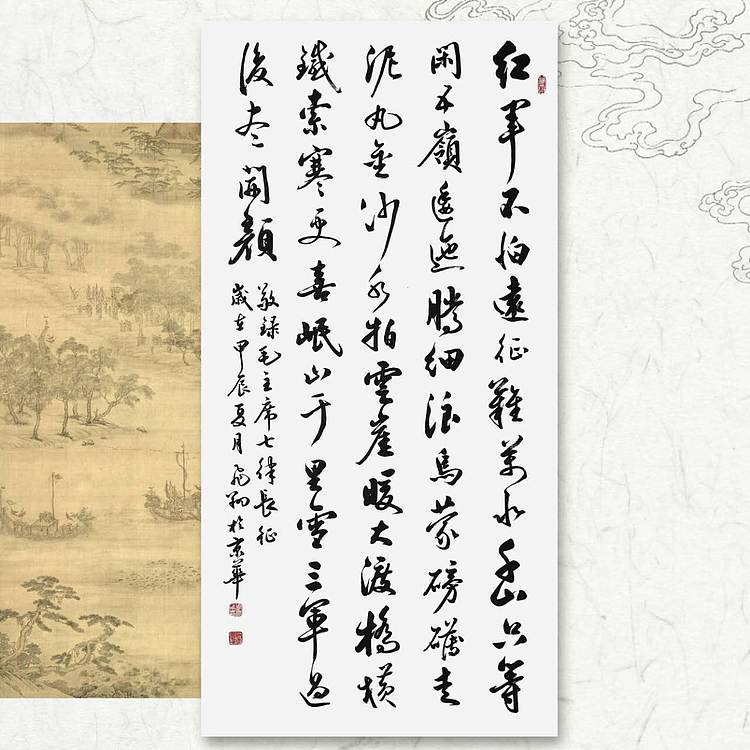 红军不怕遠征難萬水千山只等
閑五嶺逶迤騰細浪烏蒙磅礴走
泥丸金沙水拍雲崖暖大渡橋横
鐵索寒更喜岷山千里雪三軍過
後尽開顏
敬録毛主席七律長征
歲在甲辰夏月於京華